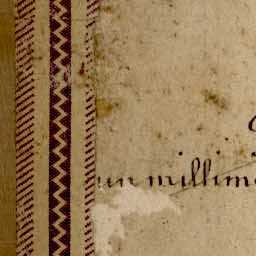 un millim